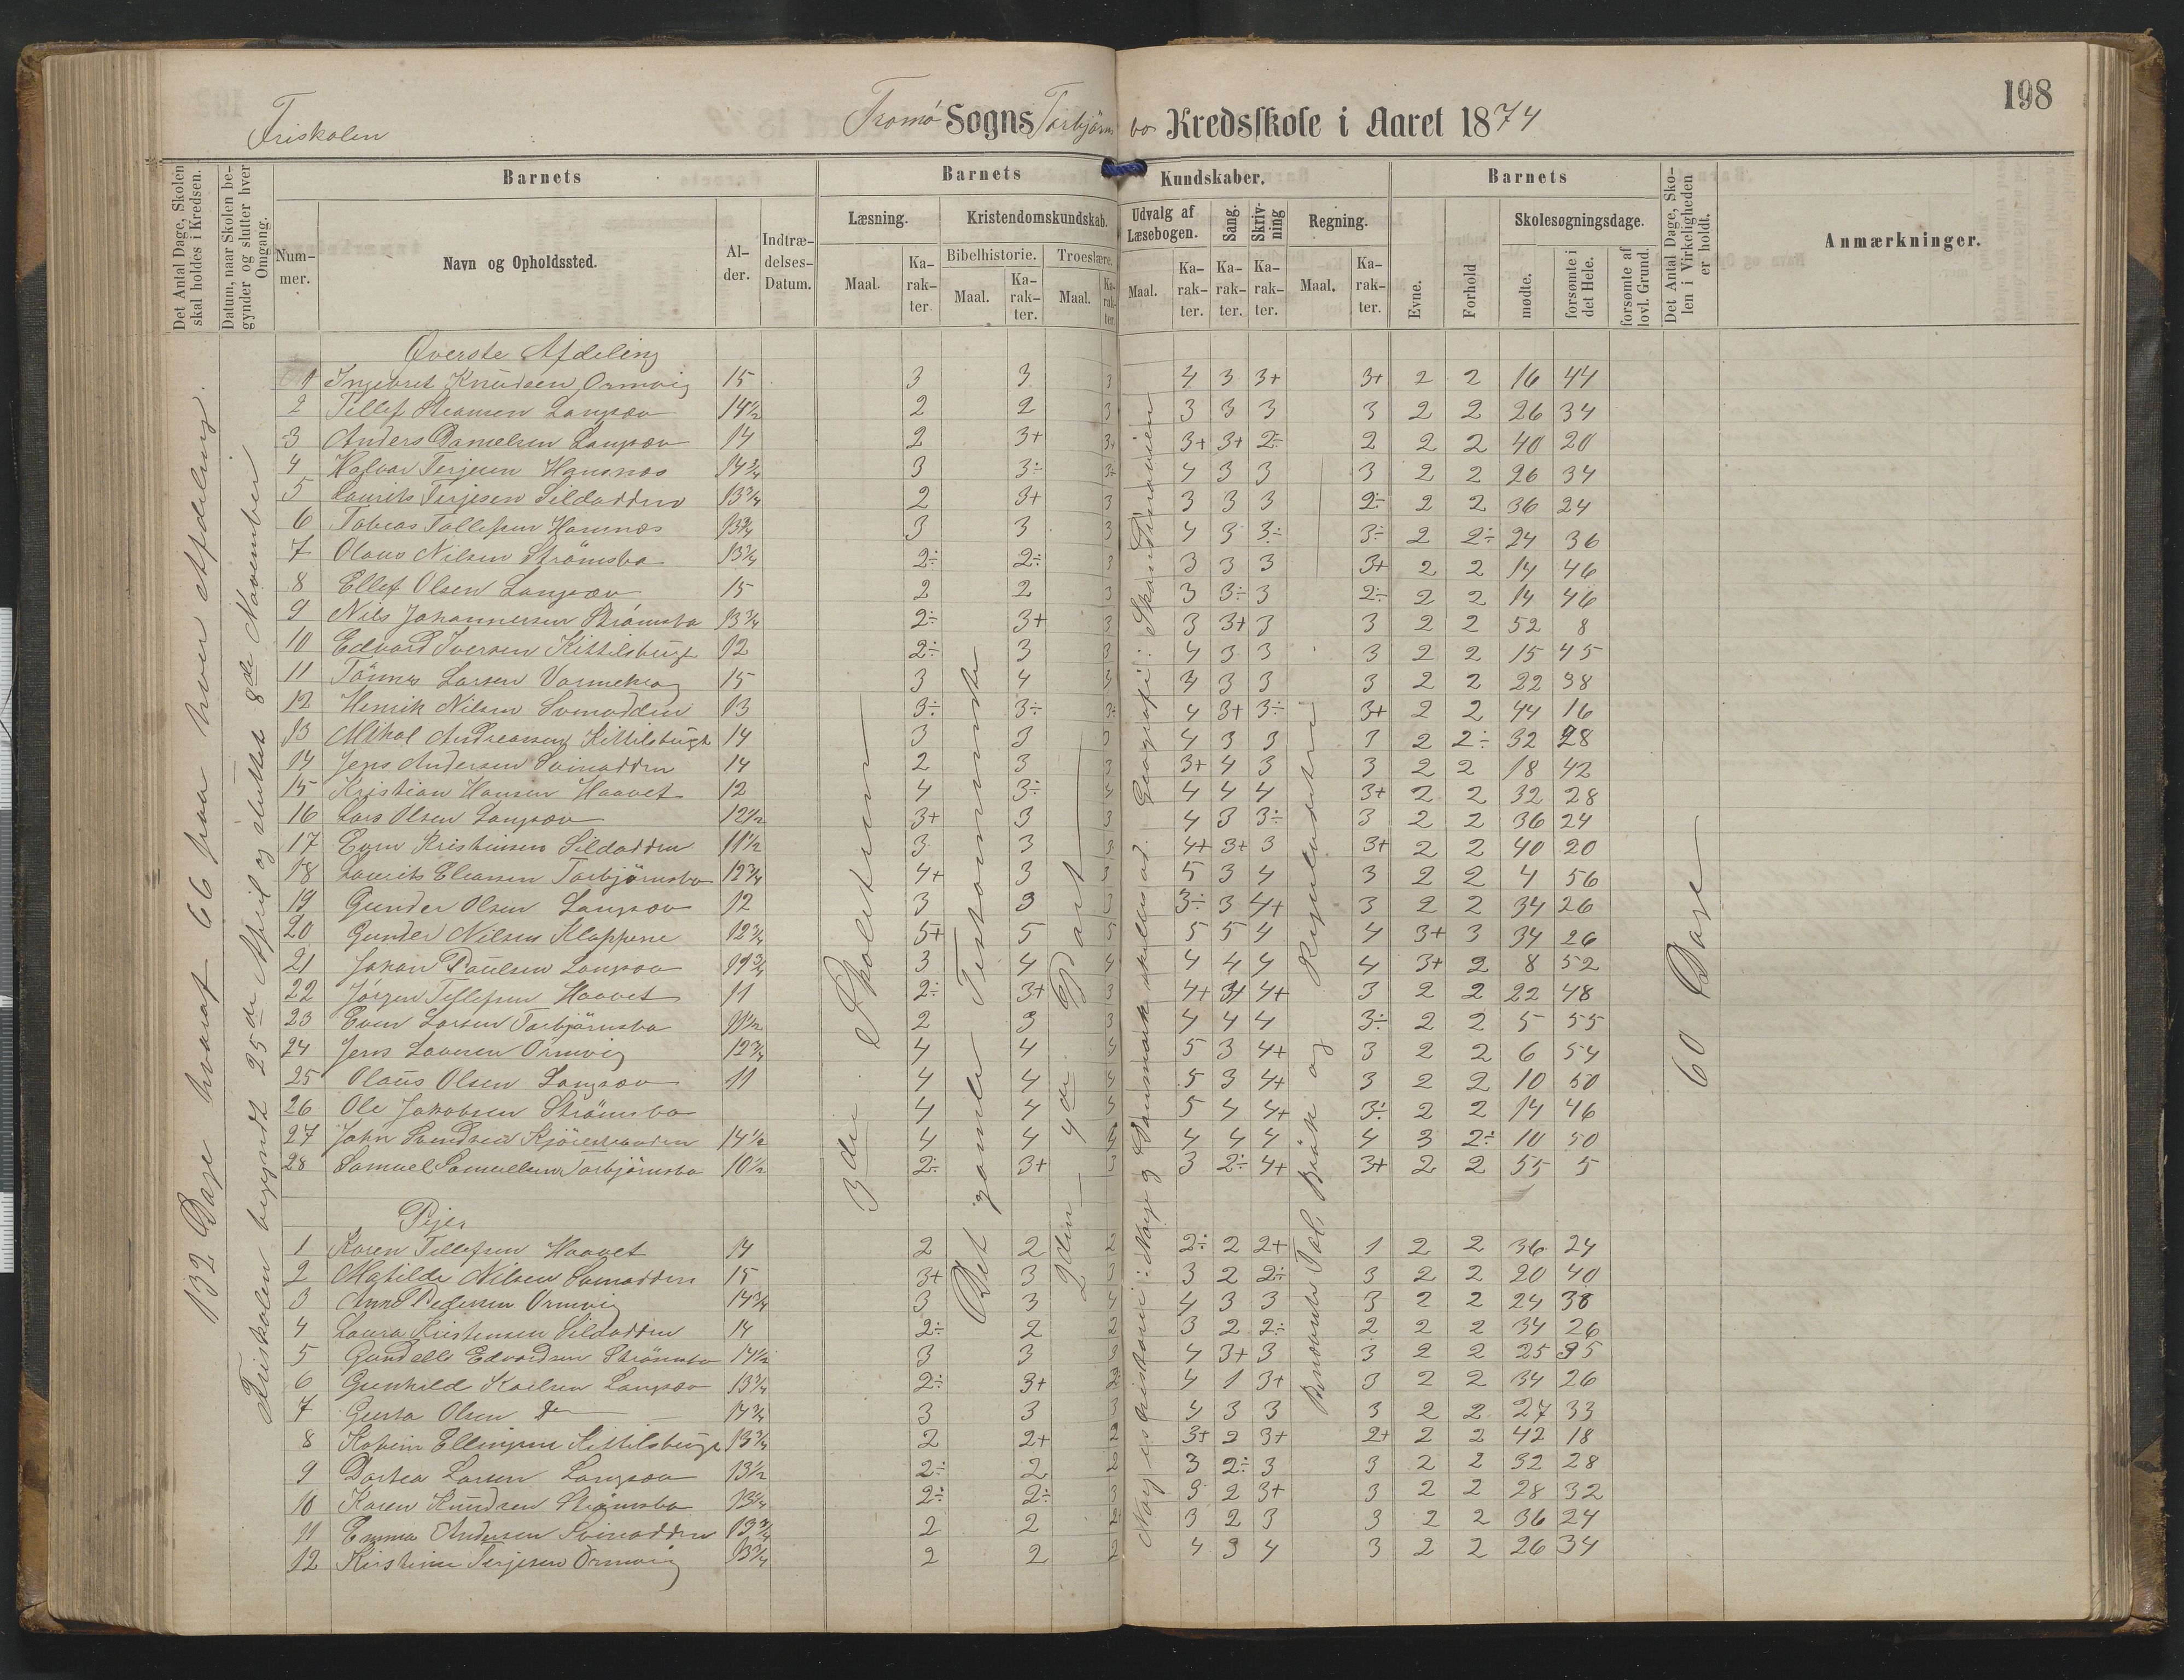 198
Friskolen Tromø Sogns Torbjörnsbo Kredsskole i Aaret 1874
Det Antal Dage, Skolen skal holdes i Kredsen.
Datum, naar Skolen begynder og slutter hver Omgang.
Barnets
Nummer.
Navn og Opholdssted.
Alder.
Indtrædelses-Datum.
Barnets Kundskaber.
Læsning.
Maal.
Karakter
Kristendomskundskab.
Bibelhistorie.
Maal.
Karakter.
Troeslære.
Maal.
Karakter.
Udvalg af Læsebogen.
Maal.
Karakter.
Sang.
Karakter.
Skrivning
Karakter.
Regning.
Maal.
Karakter.
Barnets
Evne.
Forhold
Skolesøgningsdage.
mødte.
forsømte i det Hele.
forsømte af lovl. Grund.
Det Antal Dage, Skolen i Virkeligheden er holdt.
Anmærkninger.
132 Dage hvoraf 66 paa hver Afdeling.
Friskolen begyndt 25de April og sluttet 8de November
3die Skoletrin
Det gamle Testamente
2den 4de Part
Norges historie: Norge og Danmark skilles ad. Geografi: Skandinavien
Benævnte Tal, Brøk og Reguladetri
60 Dage
Øverste Afdeling
1 Ingebret Knudsen Ormvig 15 3 3 3 4 3 3+ 3+ 2 2 16 44
2 Tellef Steansen Langsæv 14½ 2 2 3 3 3 3 3 2 2 26 34
3 Anders Danielsen Langsæv 14 2 3+ 3+ 3+ 3+ 2÷ 2 2 2 40 20
4 Halvor Terjesen Havsnæs 14¾ 3 3÷ 3+ 4 3 3 3 2 2 26 34
5 Laurits Terjesen Sildodden 13¾ 2 3+ 3 3 3 3 2÷ 2 2 36 24
6 Tobias Tallefsen Havsnæs 13¾ 3 3 3 4 3 3÷ 3÷ 2 2÷ 24 36
7 Olaus Nilsen Strömsbo 13¾ 2÷ 2÷ 3 3 3 3 3+ 2 2 14 46
8 Ellef Olsen Langsæv 15 2 2 3 3 3÷ 3 2÷ 2 2 14 46
9 Nils Johannesen Strömsbo 13¾ 2÷ 3+ 3 3 3+ 3 3 2 2 52 8
10 Edvard Iversen Kittilsbugt 12 2÷ 3 3 4 3 3 3 2 2 15 45
11 Tönnes Larsen Varmekrog 15 3 4 3 4 3 3 3 2 2 22 38
12 Henrik Nilsen Svinodden 13 3÷ 3÷ 3÷ 4 3+ 3÷ 3+ 2 2 44 16
13 Mikal Andreassen Kittilsbugt 14 3 3 3 4 3 3 3 2 2÷ 32 28
14 Jens Andersen Svinodden 14 2 3 3 3+ 4 3 3 2 2 18 42
15 Kristian Hansen Haavet 12 4 3÷ 4 4 4 4 3+ 2 2 32 28
16 Lars Olsen Langsæv 12½ 3+ 3 3 4 3 3÷ 3 2 2 36 24
17 Even Kristensen Sildodden 11½ 3 3 3 4+ 3+ 3 3+ 2 2 40 20
18 Laurits Eliassen Torbjörnsbo 12¾ 4+ 3 3 5 3 4 3 2 2 4 56
19 Gunder Olsen Langsæv 12 3 3 3 3÷ 3 4+ 3 2 2 34 26
20 Gunder Nilsen Kloppene 12¾ 5+ 5 5 5 5 4 4 3+ 3 34 26
21 Johan Paulsen Langsæv 11¾ 3 4 4 4 4 4 4 3+ 2 8 52
22 Jörgen Tellefsen Haavet 11 2÷ 3+ 3 4+ 3+ 4+ 3 2 2 22 48
23 Even Larsen Torbjörnsbo 11½ 2 3 3 4 4 4 3÷ 2 2 5 55
24 Jens Larsen Ormvig 12¾ 4 4 4 5 3 4+ 3 2 2 6 54
25 Olaus Olsen Langsæv 11 4 4 4 5 3 4+ 3 2 2 10 50
26 Ole Jakobsen Strömsbo 4 4 4 5 4 4+ 3÷ 2 2 14 46
27 John Svendsen Kjörrestranden 14½ 4 4 4 4 4 4 4 3 2÷ 10 50
28 Samuel Samuelsen Torbjörnsbo 10½ 2÷ 3+ 3 3 2÷ 4+ 3+ 2 2 55 5
Piger
1 Karen Tellefsen Haavet 14 2 2 2 2÷ 2 2+ 1 2 2 36 24
2 Matilde Nilsen Svinodden 15 3+ 3 3 3 2 2÷ 3 2 2 20 40
3 Anne Pedersen Ormvig 14¾ 3 3 4 4 3 3 3 2 2 24 38
4 Laura Kristensen Sildodden 14 2÷ 2 2 3 2 2÷ 2 2 2 34 26
5 Gundelle Edvardsen Strömsbo 14½ 3 3 3 4 3+ 3 3 2 2 25 35
6 Gunhild Karlsen Langsæv 13¾ 2÷ 3+ 2÷ 4 1 3+ 3 2 2 34 26
7 Gusta Olsen Do 14¾ 3 3 3 4 3 3 3 2 2 27 33
8 Kobine Ellingsen Kittilsbugt 13¾ 2 2+ 2 3+ 2 3+ 2+ 2 2 42 18
9 Dortea Larsen Langsæv 13½ 2÷ 2 2 3 2÷ 3 3 2 2 32 28
10 Karen Knudsen Strömsbo 13¾ 2÷ 2÷ 3 3 2 3+ 3 2 2 28 32
11 Emma Andersen Svinodden 13¾ 2 2 2 3 2 3 3 2 2 36 24
12 Kirstine Terjesen Ormvig 13¾ 2 2 2 4 3 4 3 2 2 26 34